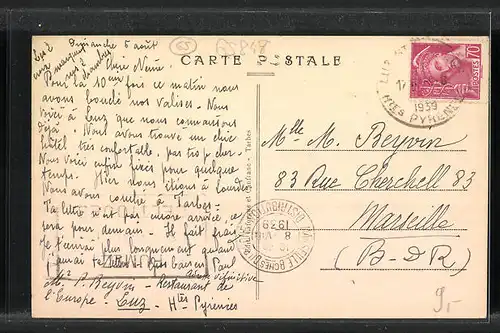 65847
CARTE POSTALE
70
POSTES
17
1939
Htes PYRENEES
Dimanche 6 août
Chère Neine.
Pour la 10eme fois ce matin nous
avons bouclé nos valises. Nous
voici à Luz que nous connaissons
déjà. Nous avons trouvé un chic
hôtel très confortable, pas trop cher.
Nous voici enfin fixés pour quelque
temps. Hier nous étions à Lourdes
Nous avons couché à Tarbes.
Ta lettre n'est pas encore arrivée, ce
sera pour demain. Il fait frais.
Je t'écrirai plus longuement quand
j'aurai ta lettre. Gros baisers Paul
adresse définitive
Mr P. Beyvin - Restaurant de
l'Europe - Luz - Htes Pyrénées
Mlle M. Beyvin
83 Rue Cherchell 83
Marseille
(B-D-R)
MARSEILLE
DISTRIBUTION
1939
8
9.-